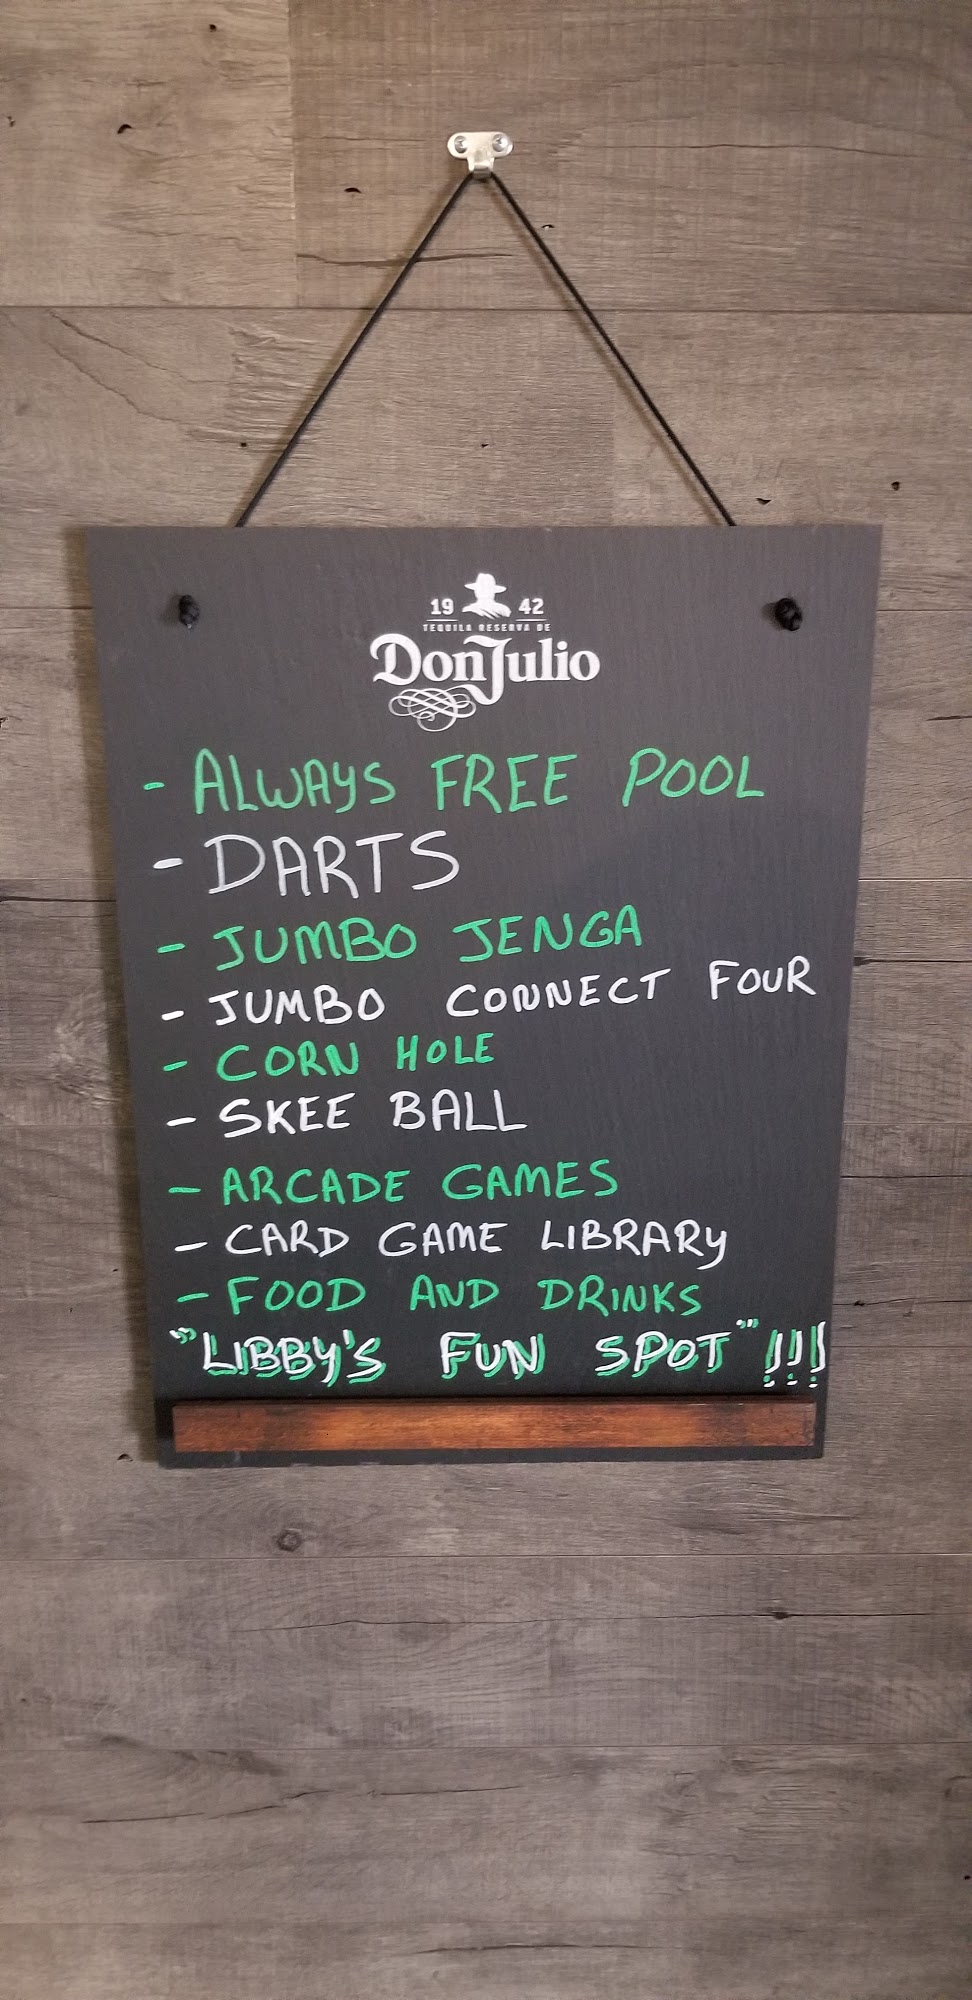 19 42
TEQUILA RESERVA DE
Don Julio
- ALWAYS FREE POOL
- DARTS
- JUMBO JENGA
- JUMBO CONNECT FOUR
- CORN HOLE
- SKEE BALL
- ARCADE GAMES
- CARD GAME LIBRARY
- FOOD AND DRINKS
"LIBBY'S FUN SPOT"!!!